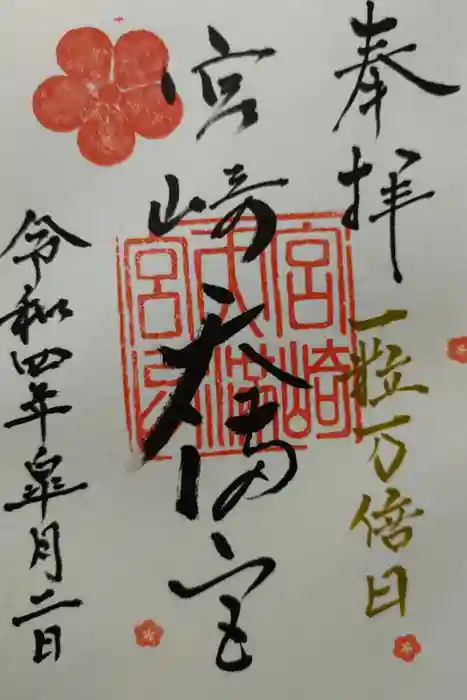 奉拝
一粒万倍日
宮崎天満宮
宮崎天満宮
令和四年皐月二日